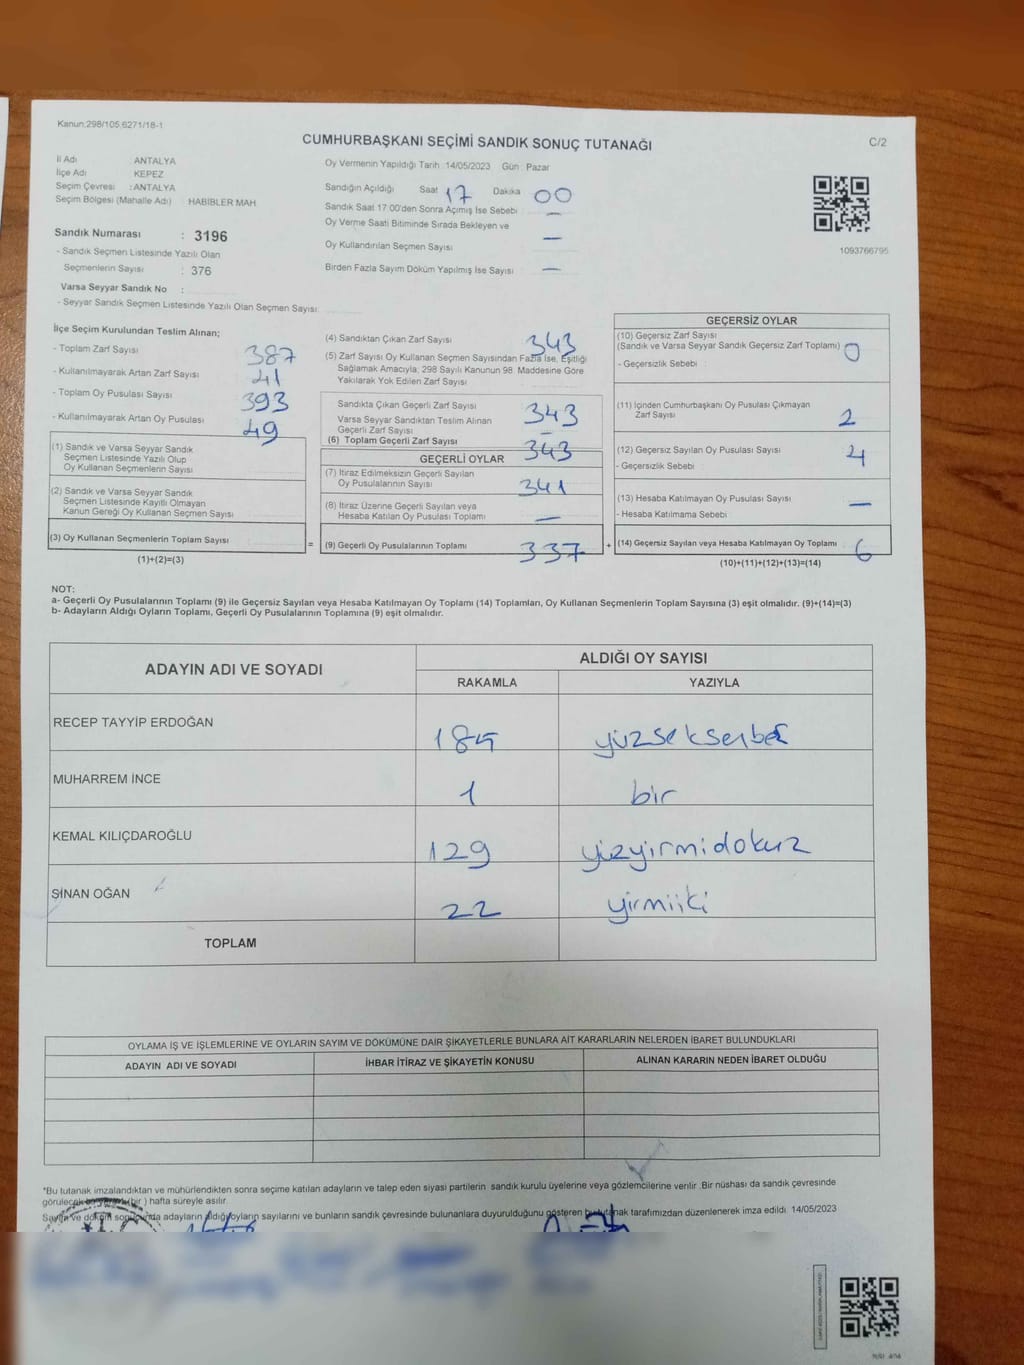 Kanun;298/105,6271/18-1
CUMHURBAŞKANI SEÇİMİ SANDIK SONUÇ TUTANAĞI
C/2
İl Adı ANTALYA
İlçe Adı KEPEZ
Seçim Çevresi : ANTALYA
Seçim Bölgesi (Mahalle Adı) : HABİBLER MAH
Oy Vermenin Yapıldığı Tarih :14/05/2023 Gün : Pazar
Sandığın Açıldığı Saat 17 Dakika 00
Sandık Saat 17:00'den Sonra Açımış İse Sebebi —
Oy Verme Saati Bitiminde Sırada Bekleyen ve
Oy Kullandırılan Seçmen Sayısı —
Birden Fazla Sayım Döküm Yapılmış İse Sayısı —
1093766795
Sandık Numarası : 3196
- Sandık Seçmen Listesinde Yazılı Olan
Seçmenlerin Sayısı : 376
Varsa Seyyar Sandık No :
- Seyyar Sandık Seçmen Listesinde Yazılı Olan Seçmen Sayısı:
İlçe Seçim Kurulundan Teslim Alınan;
- Toplam Zarf Sayısı 387
- Kullanılmayarak Artan Zarf Sayısı 41
- Toplam Oy Pusulası Sayısı 393
- Kullanılmayarak Artan Oy Pusulası 49
(1) Sandık ve Varsa Seyyar Sandık
Seçmen Listesinde Yazılı Olup
Oy Kullanan Seçmenlerin Sayısı
(2) Sandık ve Varsa Seyyar Sandık
Seçmen Listesinde Kayıtlı Olmayan
Kanun Gereği Oy Kullanan Seçmen Sayısı
(3) Oy Kullanan Seçmenlerin Toplam Sayısı
(1)+(2)=(3)
=
(4) Sandıktan Çıkan Zarf Sayısı 343
(5) Zarf Sayısı Oy Kullanan Seçmen Sayısından Fazla İse, Eşitliği
Sağlamak Amacıyla, 298 Sayılı Kanunun 98. Maddesine Göre
Yakılarak Yok Edilen Zarf Sayısı
Sandıkta Çıkan Geçerli Zarf Sayısı 343
Varsa Seyyar Sandıktan Teslim Alınan
Geçerli Zarf Sayısı —
(6) Toplam Geçerli Zarf Sayısı 343
GEÇERLİ OYLAR
(7) İtiraz Edilmeksizin Geçerli Sayılan
Oy Pusulalarının Sayısı 341
(8) İtiraz Üzerine Geçerli Sayılan veya
Hesaba Katılan Oy Pusulası Toplamı —
(9) Geçerli Oy Pusulalarının Toplamı 337
+
GEÇERSİZ OYLAR
(10) Geçersiz Zarf Sayısı
(Sandık ve Varsa Seyyar Sandık Geçersiz Zarf Toplamı) 0
- Geçersizlik Sebebi :
(11) İçinden Cumhurbaşkanı Oy Pusulası Çıkmayan
Zarf Sayısı 2
(12) Geçersiz Sayılan Oy Pusulası Sayısı 4
- Geçersizlik Sebebi
(13) Hesaba Katılmayan Oy Pusulası Sayısı —
- Hesaba Katılmama Sebebi
(14) Geçersiz Sayılan veya Hesaba Katılmayan Oy Toplamı 6
(10)+(11)+(12)+(13)=(14)
NOT:
a- Geçerli Oy Pusulalarının Toplamı (9) ile Geçersiz Sayılan veya Hesaba Katılmayan Oy Toplamı (14) Toplamları, Oy Kullanan Seçmenlerin Toplam Sayısına (3) eşit olmalıdır. (9)+(14)=(3)
b- Adayların Aldığı Oyların Toplamı, Geçerli Oy Pusulalarının Toplamına (9) eşit olmalıdır.
ADAYIN ADI VE SOYADI
ALDIĞI OY SAYISI
RAKAMLA YAZIYLA
RECEP TAYYİP ERDOĞAN 185 yüzseksenbeş
MUHARREM İNCE 1 bir
KEMAL KILIÇDAROĞLU 129 yüzyirmidokuz
SİNAN OĞAN 22 yirmiiki
TOPLAM
OYLAMA İŞ VE İŞLEMLERİNE VE OYLARIN SAYIM VE DÖKÜMÜNE DAİR ŞİKAYETLERLE BUNLARA AİT KARARLARIN NELERDEN İBARET BULUNDUKLARI
ADAYIN ADI VE SOYADI İHBAR İTİRAZ VE ŞİKAYETİN KONUSU ALINAN KARARIN NEDEN İBARET OLDUĞU
*Bu tutanak imzalandıktan ve mühürlendikten sonra seçime katılan adayların ve talep eden siyasi partilerin sandık kurulu üyelerine veya gözlemcilerine verilir .Bir nüshası da sandık çevresinde
görülecek bir yere (bir ) hafta süreyle asılır.
Sayım ve döküm sonunda adayların aldığı oyların sayılarını ve bunların sandık çevresinde bulunanlara duyurulduğunu gösteren bu tutanak tarafımızdan düzenlenerek imza edildi. 14/05/2023